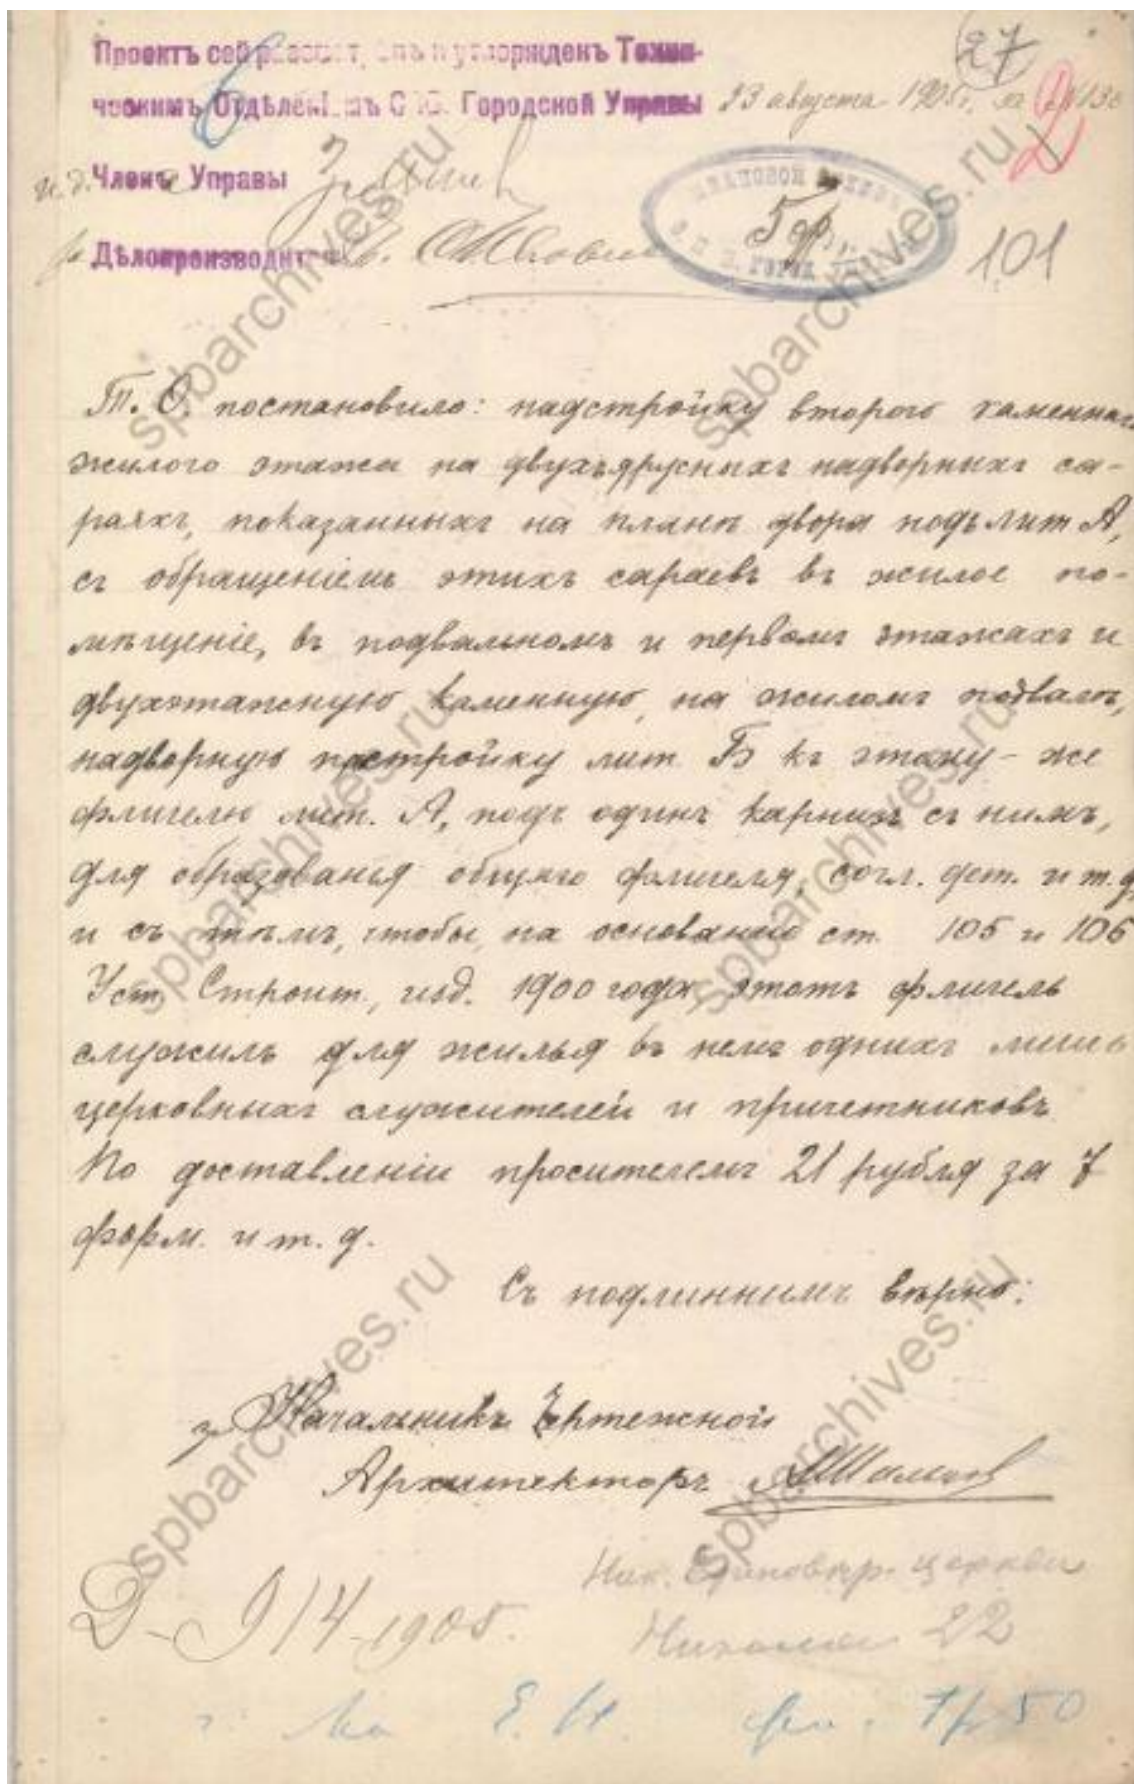 27
Проектъ сей разсмотрѣнъ и утвержденъ Техни-
ческимъ Отдѣленіемъ С.Пб. Городской Управы 23 августа 1905 г. за №
2
и.д. Членъ Управы
Дѣлопроизводитель
101
Т. О. постановило: надстройку второго каменнаго
жилого этажа на двухъярусныхъ надворныхъ са-
раяхъ, показанныхъ на планѣ двора подъ лит А,
съ обращеніемъ этихъ сараевъ въ жилое по-
мѣщеніе, въ подвальномъ и первомъ этажахъ и
двухэтажную каменную, на жиломъ подвалѣ,
надворную постройку лит. Б къ этому-же
флигелю лит. А, подъ одинъ карнизъ съ нимъ,
для образованья общаго флигеля, согл. дет. и т. д
и съ тѣмъ, чтобы, на основаніи ст. 105 и 106
Уст. Строит., изд. 1900 года, этотъ флигель
служилъ для жилья въ немъ однихъ лишь
церковныхъ служителей и причетниковъ.
По доставленіи просителемъ 21 рубля за 7
форм. и т. д.
Съ подлиннымъ вѣрно:
Начальникъ Чертежной
Архитекторъ
Ник. Единовѣр. церкви
Д-914-1905.
Николаев 22
50
spbarchives.ru
spbarchives.ru
spbarchives.ru
spbarchives.ru
spbarchives.ru
spbarchives.ru